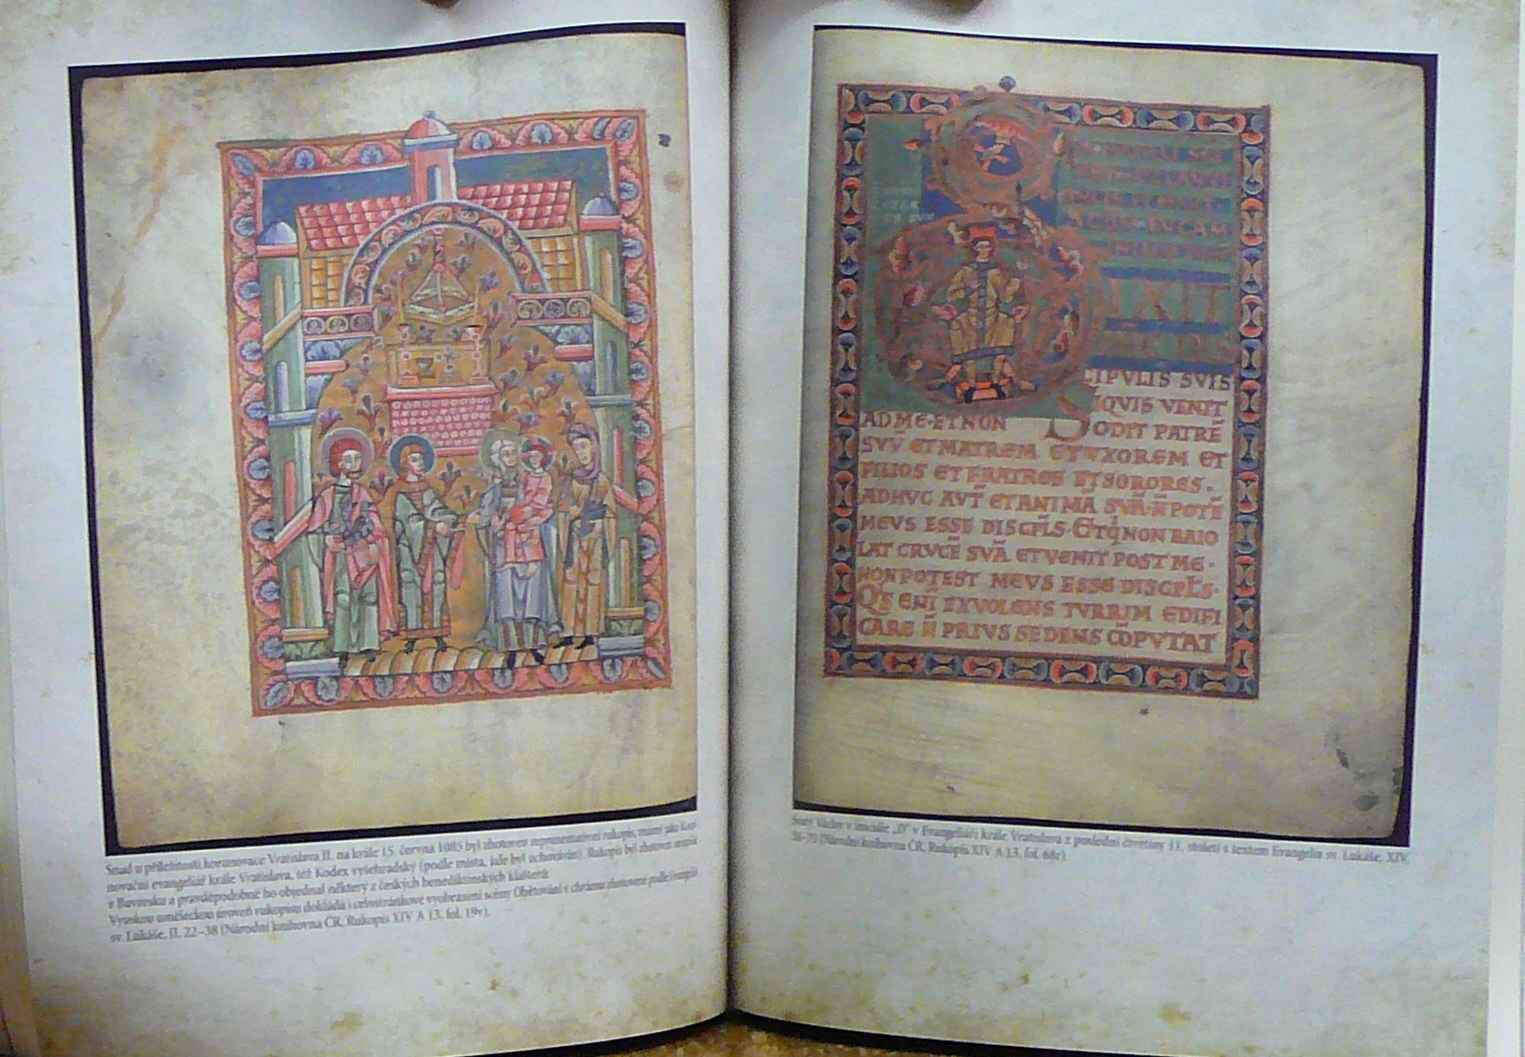 Snad u příležitosti korunovace Vratislava II. na krále 15. června 1085 byl zhotoven reprezentativní rukopis, známý jako Koru-
novační evangeliář krále Vratislava, též Kodex vyšehradský (podle místa, kde byl uchováván). Rukopis byl zhotoven
v Bavorsku a pravděpodobně ho objednal některý z českých benediktinských klášterů.
Vysokou uměleckou úroveň rukopisu dokládá i celostránkové vyobrazení scény Obětování v chrámu zhotovené podle
sv. Lukáše, II, 22–38 (Národní knihovna ČR, Rukopis XIV A 13, fol. 19v).
CIPULIS SUIS
SIQUIS VENIT
AD ME·ET NON ODIT PATRĒ
SUU ET MATREM ET UXOREM ET
FILIOS ET FRATRES ET SORORES·
ADHUC AUT ET ANIMĀ SUĀ·N POTĒ
MEUS ESSE DISCPLS·ET Q NON BAIO
LAT CRUCĒ SUĀ ET VENIT POST ME·
NON POTEST MEUS ESSE DISCPLS·
QS ENI EX VOLENS TURRIM EDIFI
CARE N PRIUS SEDENS COPUTAT
Svatý Václav v iniciále „D“ v Evangeliáři krále Vratislava z poslední čtvrtiny 11. století s textem Evangelia sv. Lukáše, XIV,
(Národní knihovna ČR, Rukopis XIV A 13, fol. 68r).